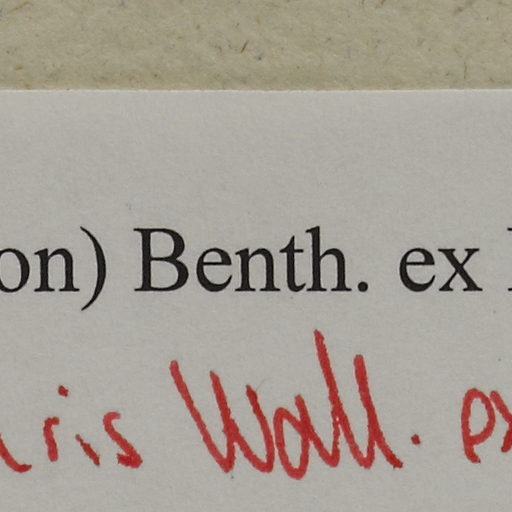 on) Benth. ex
ris Wall. ex